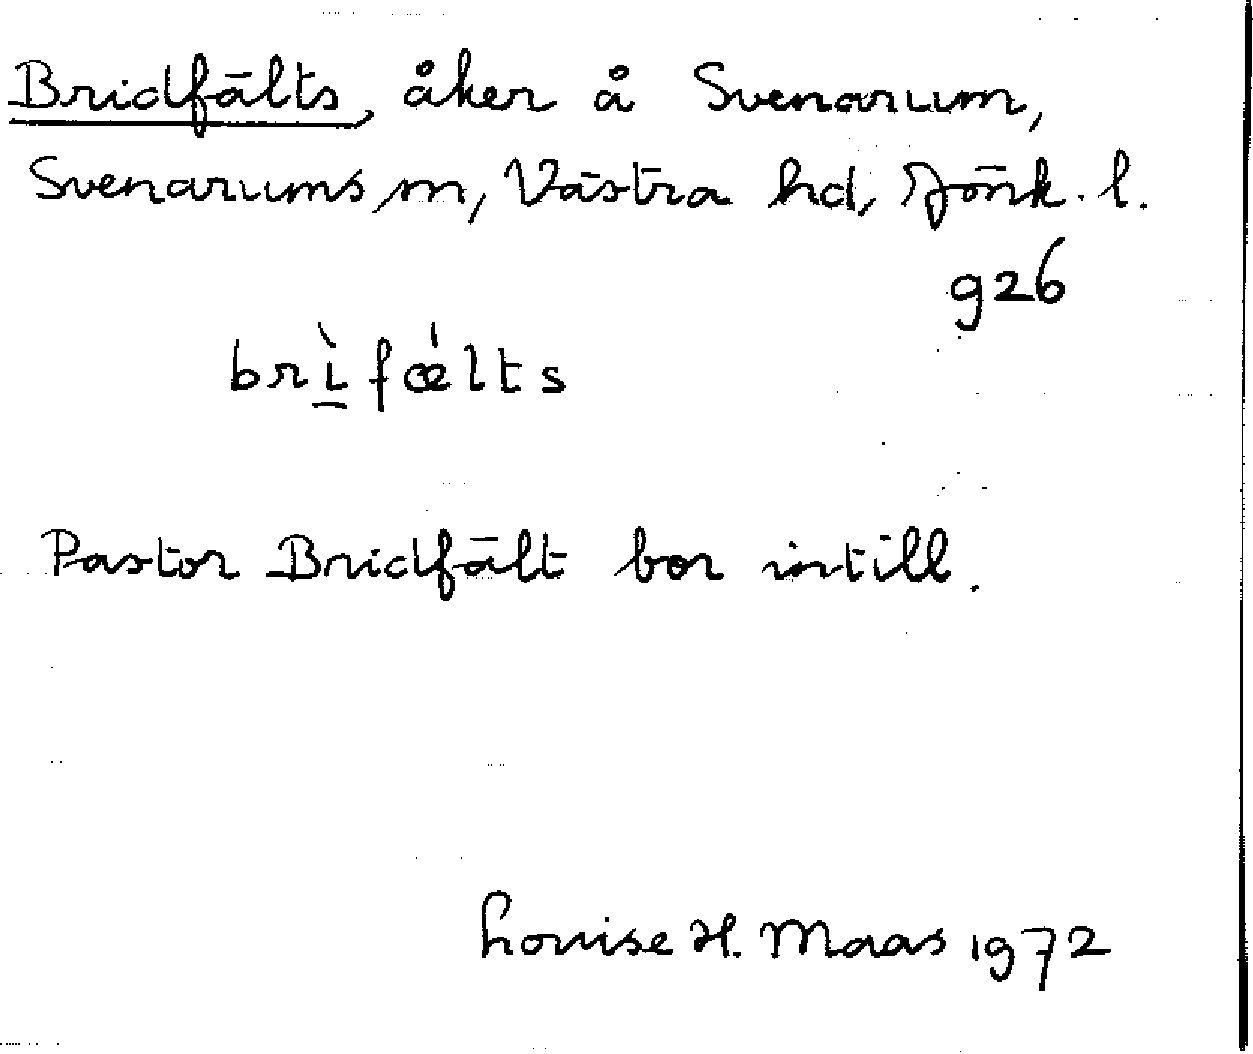 Bridfälts, åker å Svenarum,
Svenarums sn, Västra hd, Jönk. l.
926
brɩ̀fǽlts
Pastor Bridfält bor intill.
Louise H. Maas 1972